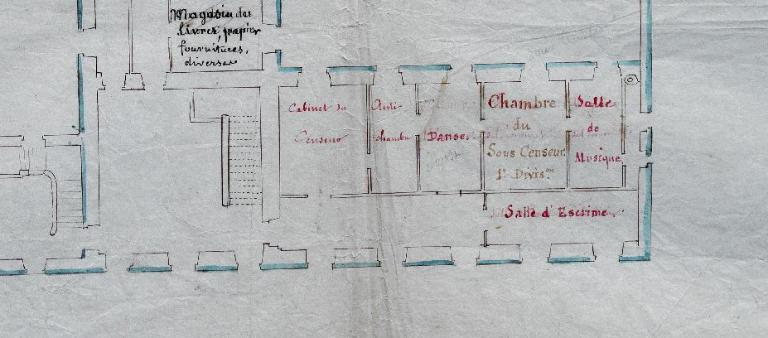 Magasin des
livres, papier
fournitures,
diverses
Cabinet du
Censeur
Anti-
chambre
Danse.
Chambre
du
Sous Censeur
1re Divis.on
Salle
de
Musique
Salle d'Escrime